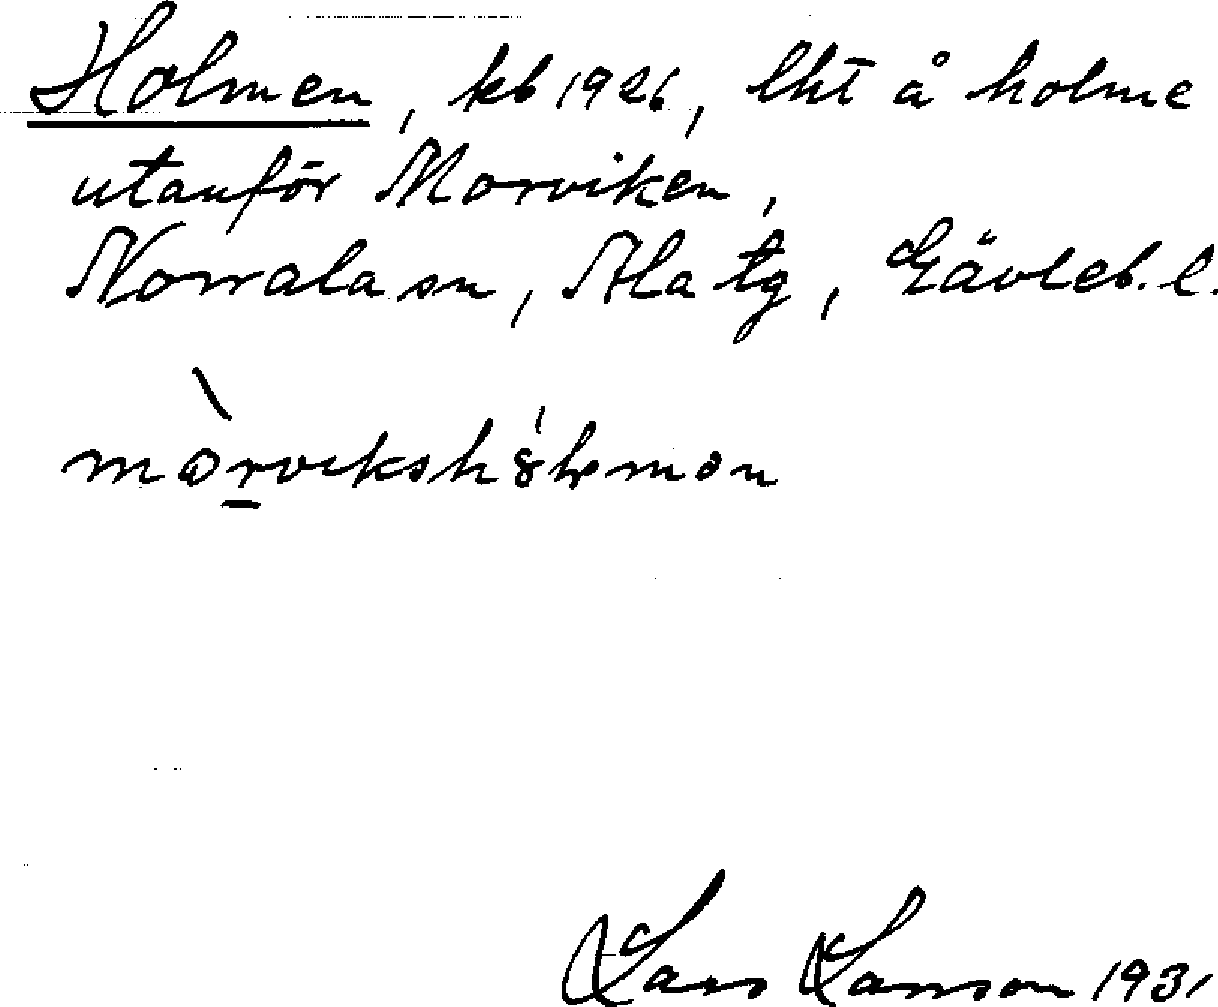 Holmen, kb 1926, lht å holme
utanför Morviken,
Norrala sn, Ala tg, Gävleb. l.
mòrvikshólmən
Lars Larsson 1931